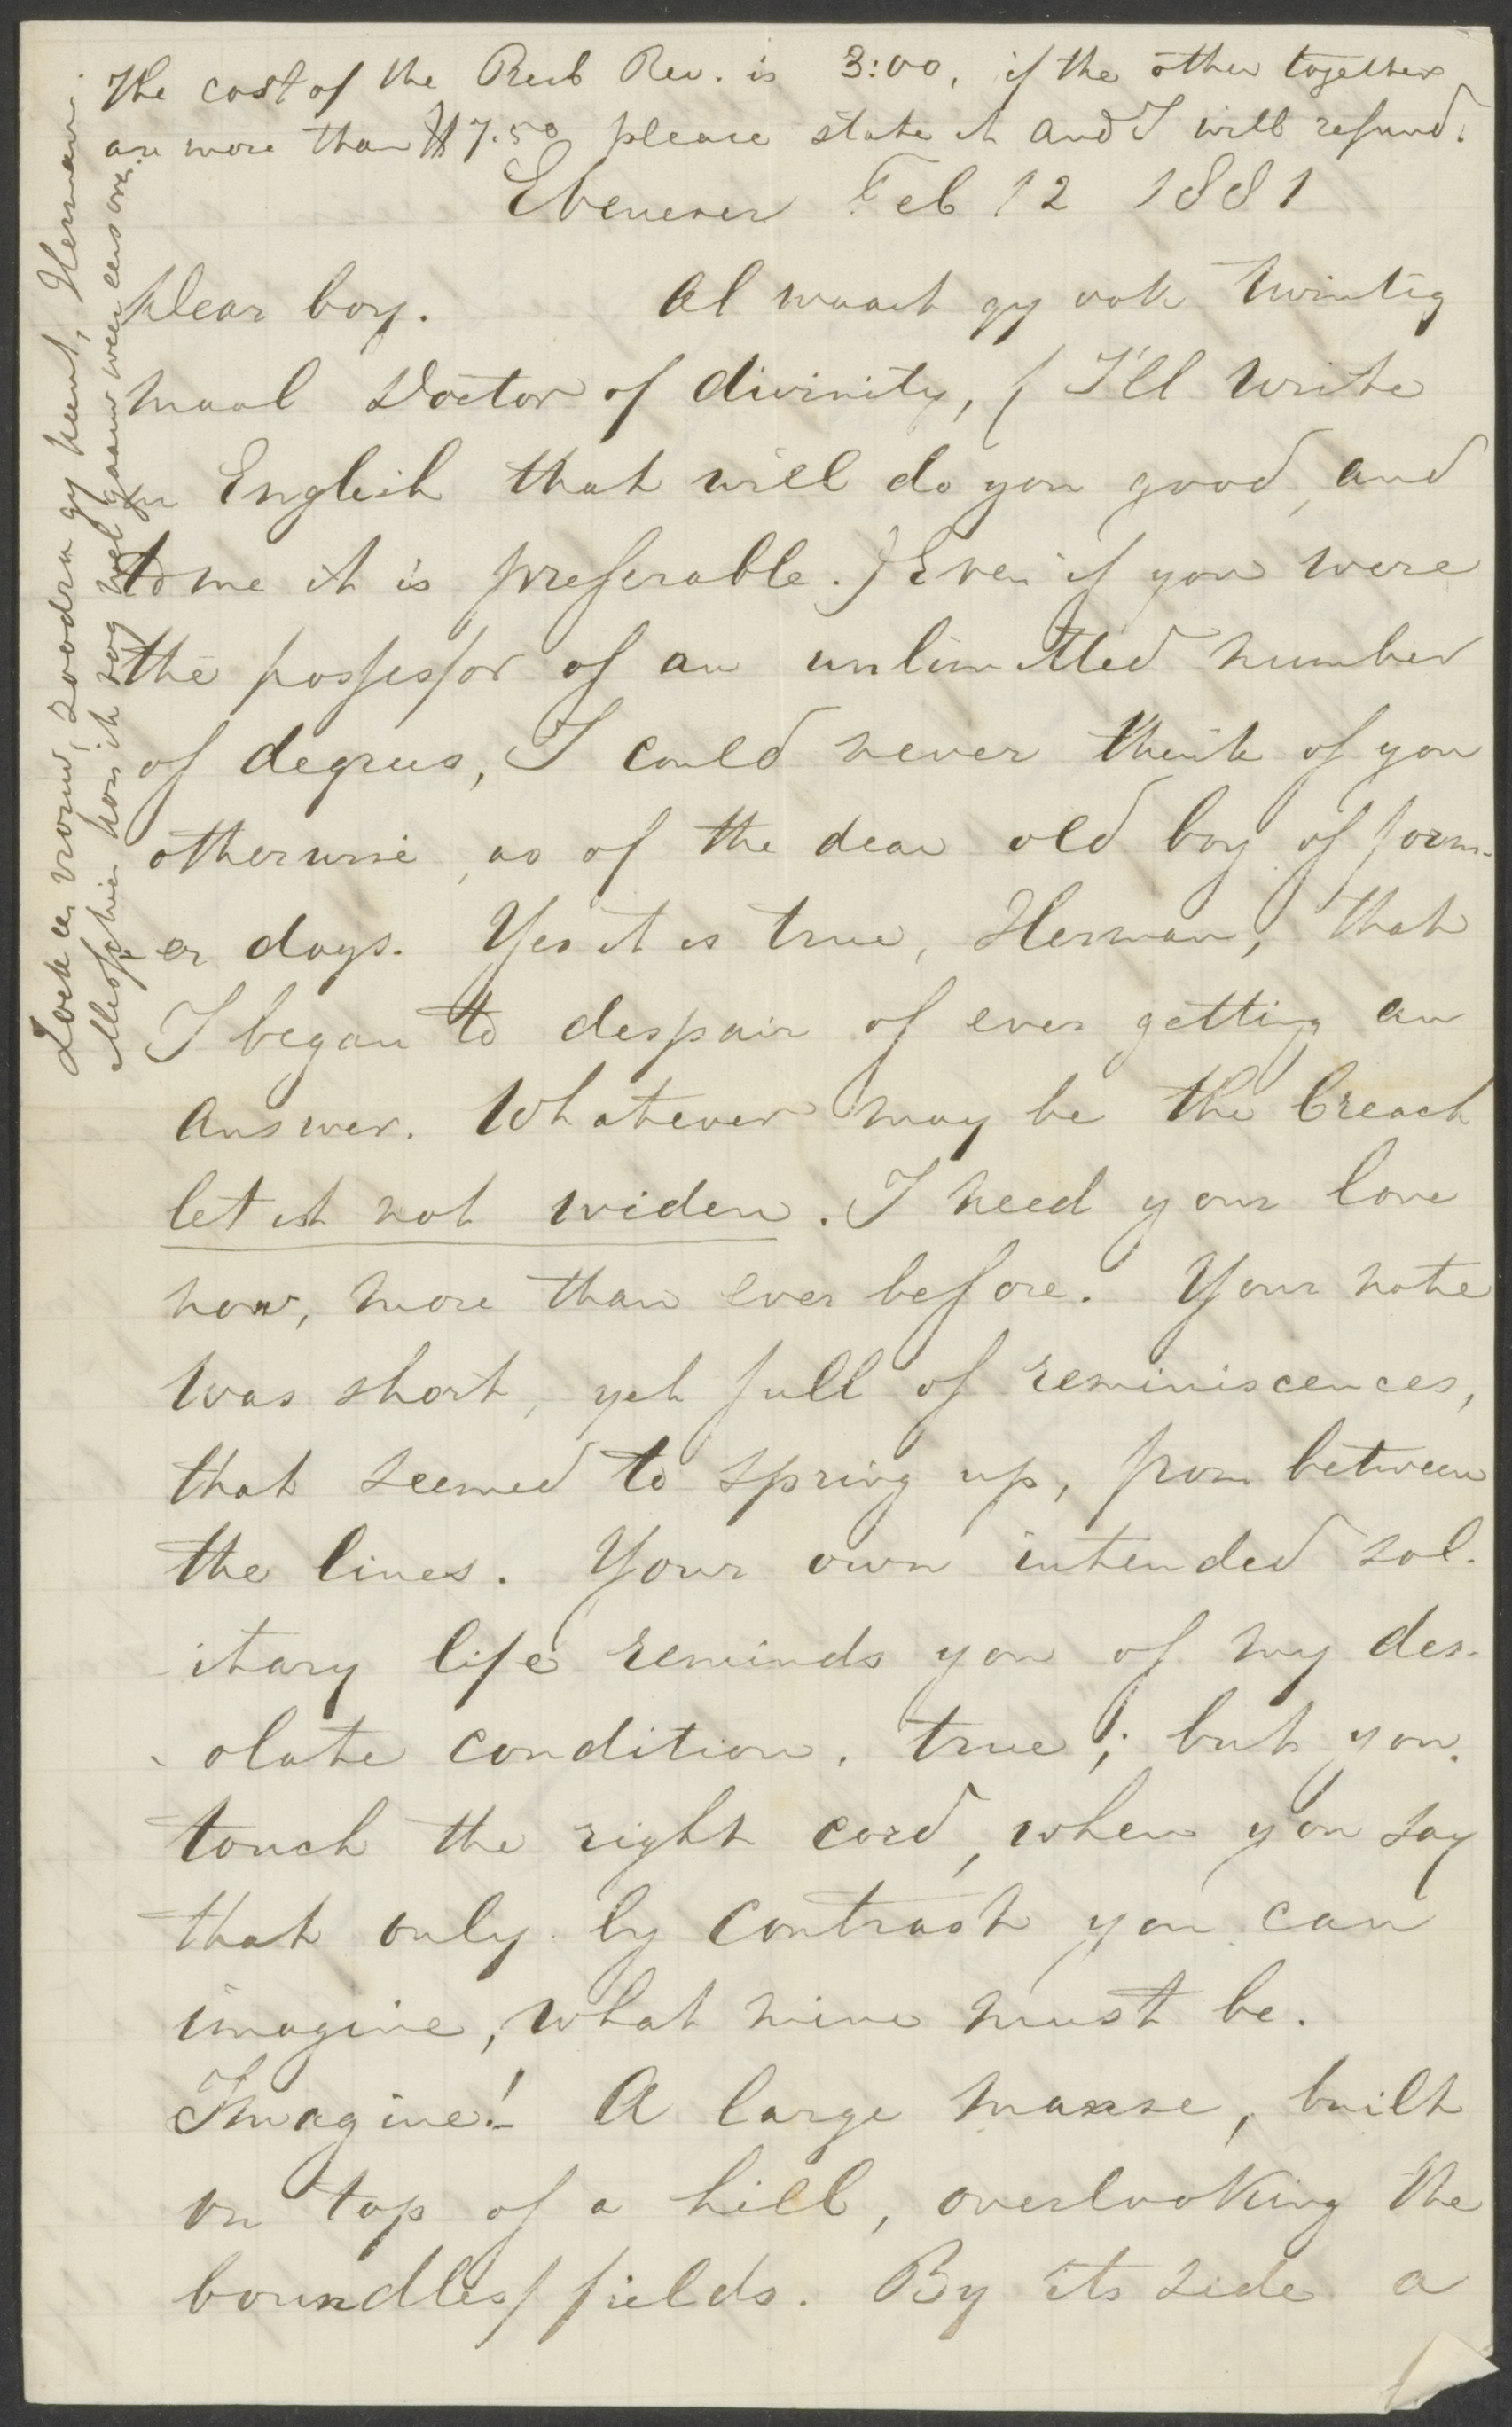 The cost of the Presb Rev. is 3:00, if the other together
are more than $7.50 please state it and I will refund.
Ebenezer Feb 12 1881
Dear boy. Al waart gy ook twintig
maal Doctor of divinity, (I'll write
in English that will do you good, and
to me it is preferable.) Even if you were
the possessor of an unlimitted number
of degrees, I could never think of you
otherwise, as of the dear old boy of form-
er days. Yes it is true, Herman, that
I began to despair of ever getting an
answer. Whatever may be the breach
let it not widen. I need your love
now, more than ever before. Your note
was short, yet full of reminiscences,
that seemed to spring up, from between
the lines. Your own intended sol-
itary life reminds you of my des-
olate condition. true; but you
touch the right cord, when you say
that only by contrast you can
imagine, what mine must be.
Imagine! A large manse, built
on top of a hill, overlooking the
boundless fields. By its side a
Zoek een vrouw, zoodra gy kunt, Herman.
Misschien kom ik nog wel gaauw weer eens over.